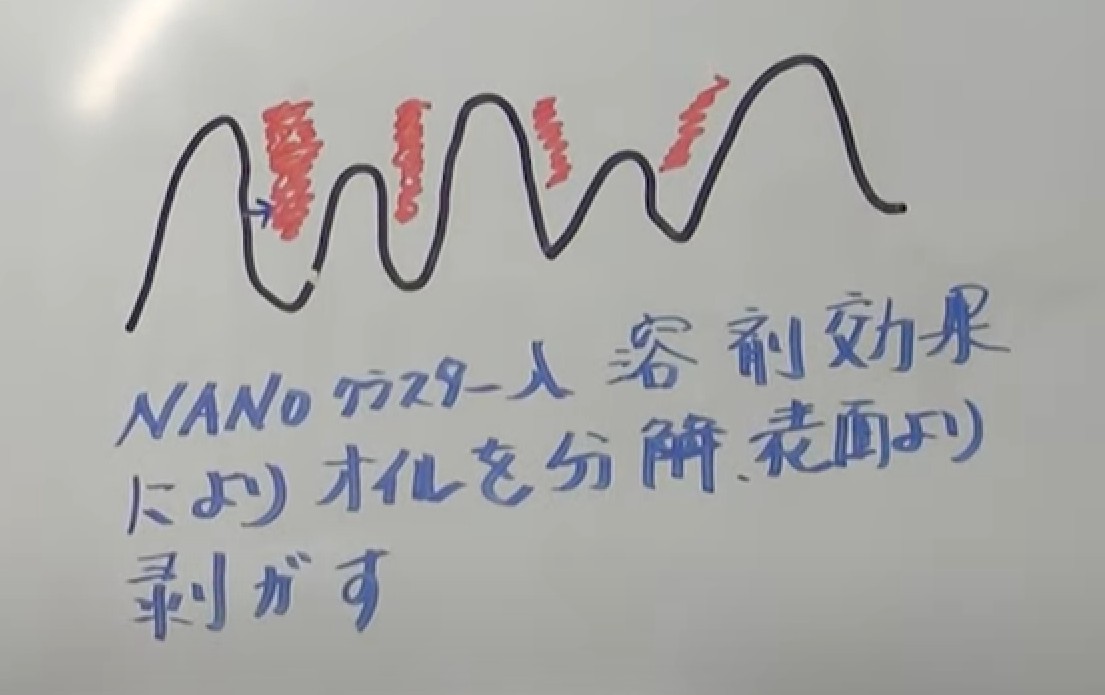 NANOクラスター入 溶剤効果
によりオイルを分解、表面より
剥がす